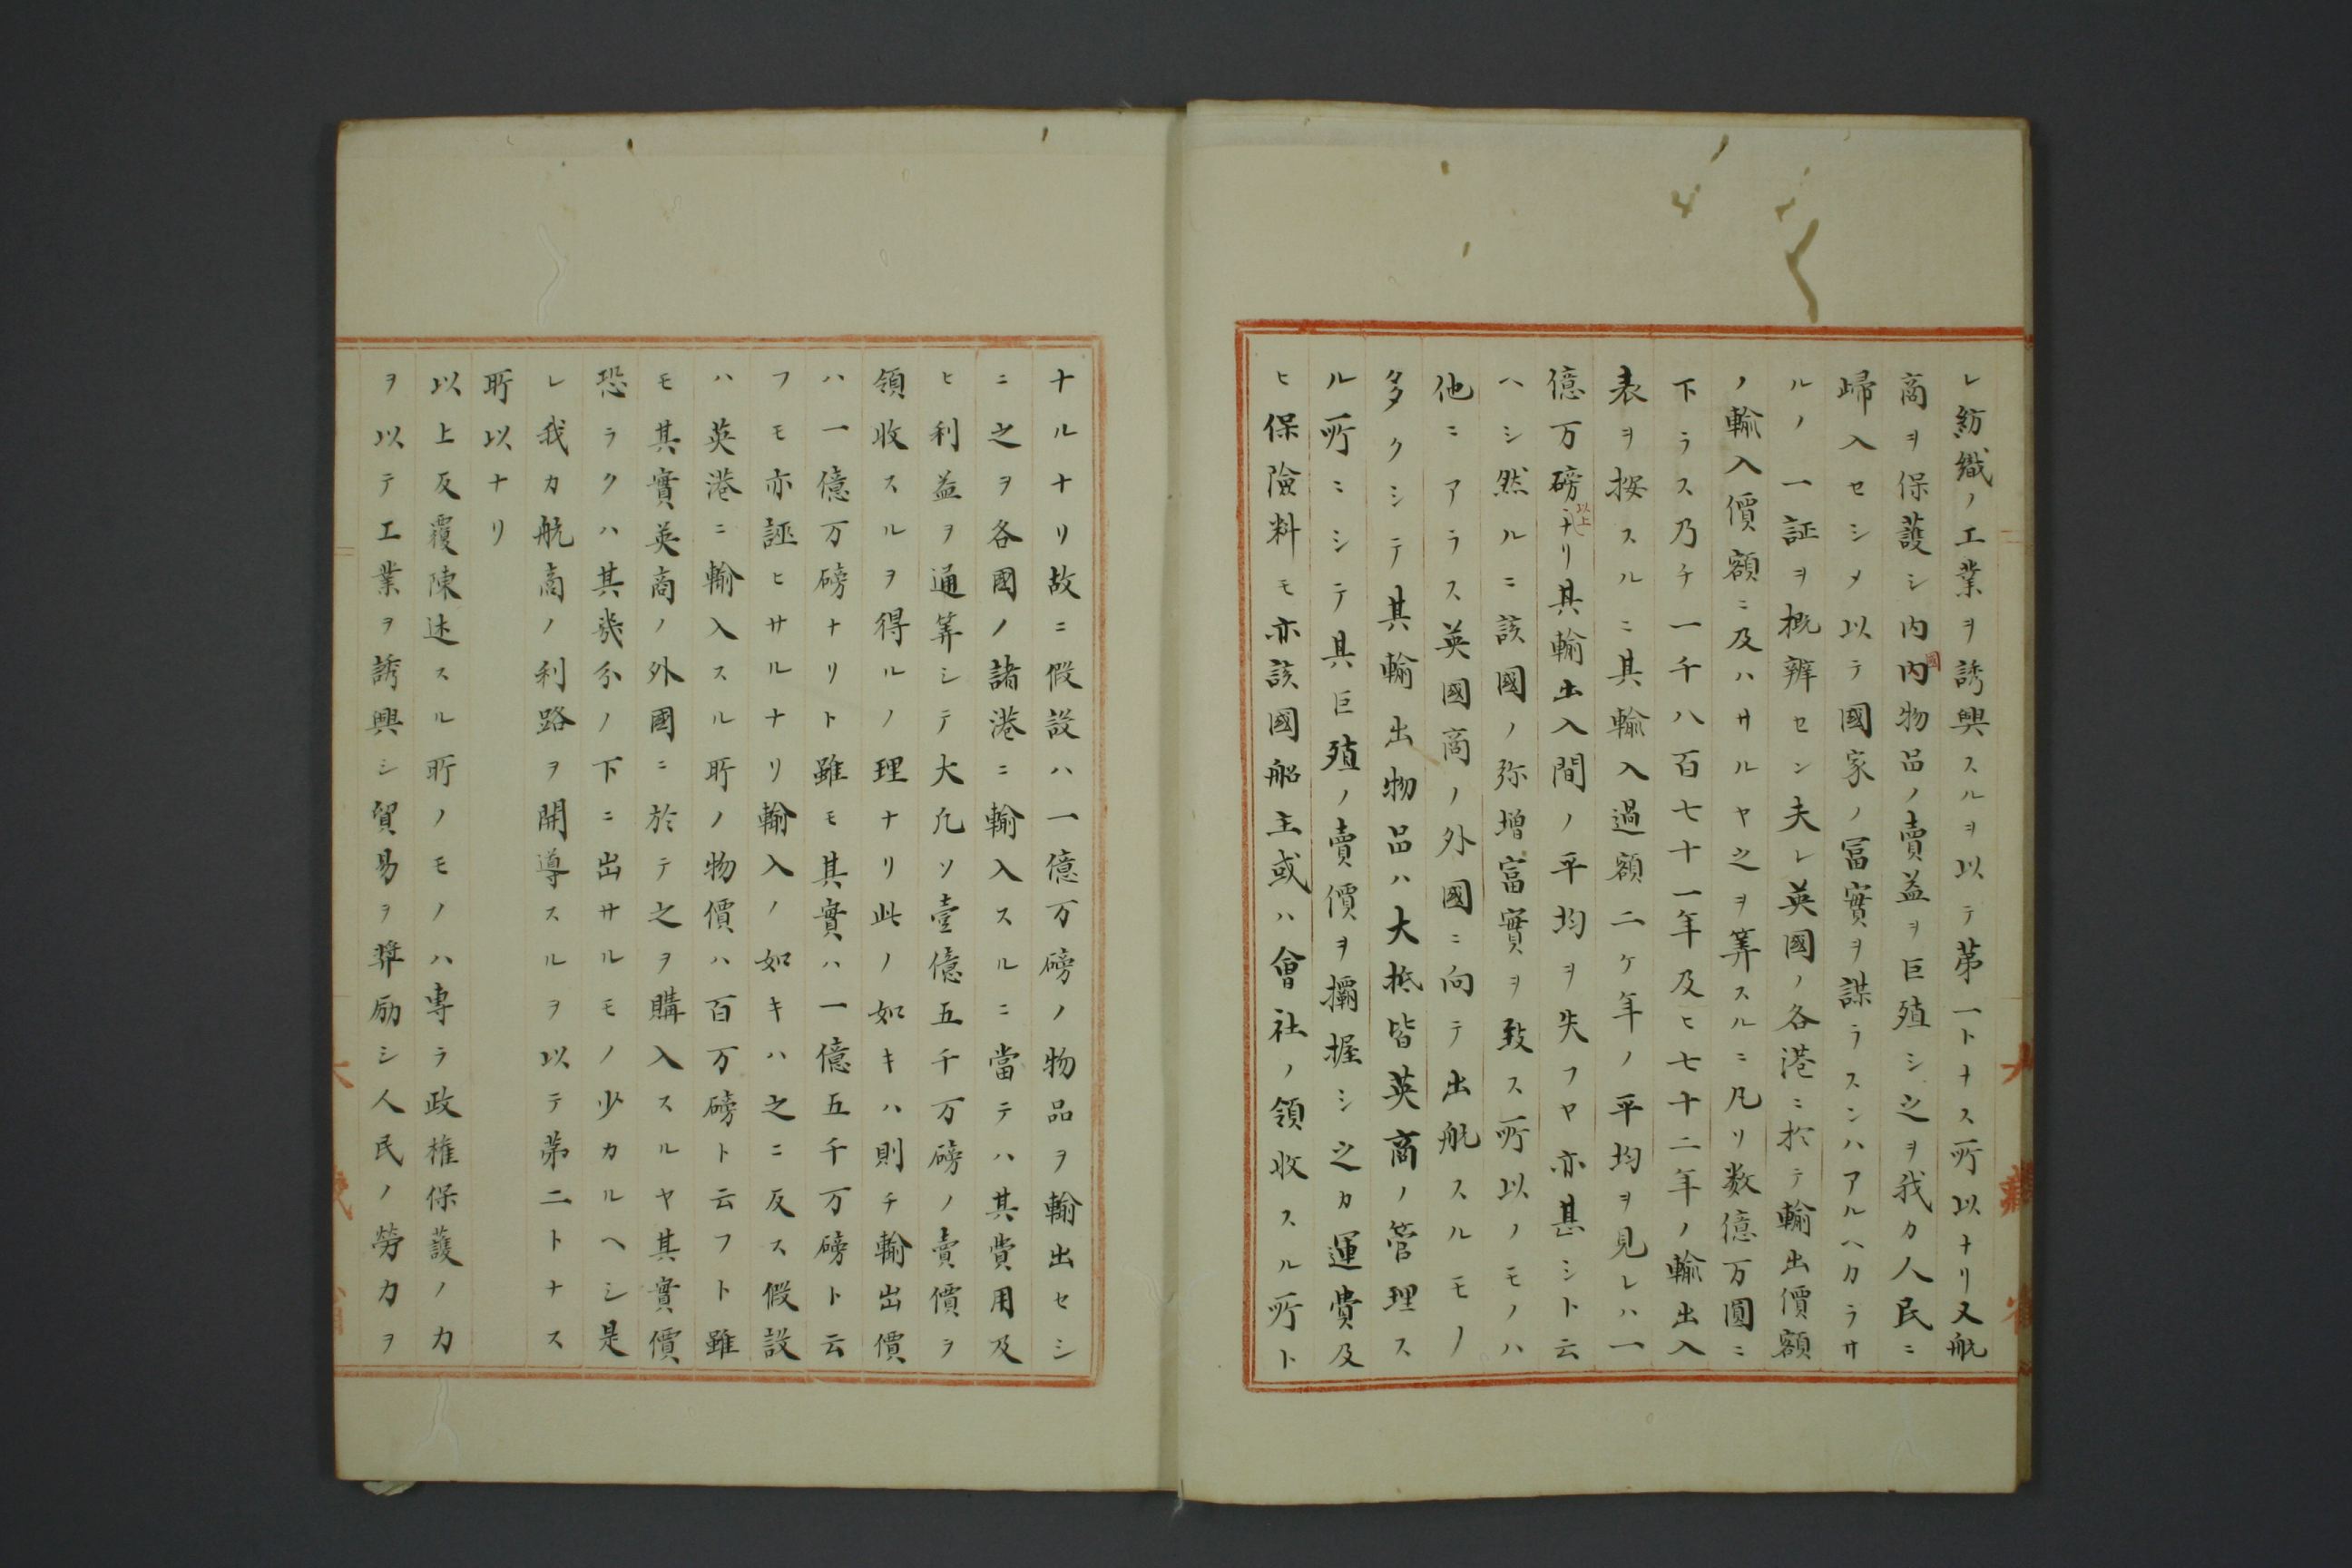 レ紡織ノ工業ヲ誘興スルヲ以テ第一トナス所以ナリ又航
商ヲ保護シ内内國物品ノ賣益ヲ巨殖シ之ヲ我カ人民ニ
歸入セシメ以テ國家ノ冨實ヲ謀ラスンハアルヘカラサ
ルノ一証ヲ概辨セン夫レ英國ノ各港ニ於テ輸出價額
ノ輸入價額ニ及ハサルヤ之ヲ筭スルニ凡ソ数億万圓ニ
下ラス乃チ一千八百七十一年及ヒ七十二年ノ輸出入
表ヲ按スルニ其輸入過額二ケ年ノ平均ヲ見レハ一
億万磅以上ナリ其輸出入間ノ平均ヲ失フヤ亦甚シト云
ハシ然ルニ該國ノ弥増富實ヲ致ス所以ノモノハ
他ニアラス英國商ノ外國ニ向テ出航スルモノ
多クシテ其輸出物品ハ大抵皆英商ノ管理ス
ル所ニシテ其巨殖ノ賣價ヲ攔握シ之カ運費及
ヒ保險料モ亦該國船主或ハ會社ノ領收スル所ト
ナルナリ故ニ假設ハ一億万磅ノ物品ヲ輸出セシ
ニ之ヲ各國ノ諸港ニ輸入スルニ當テハ其費用及
ヒ利益ヲ通筭シテ大凡ソ壹億五千万磅ノ賣價ヲ
領收スルヲ得ルノ理ナリ此ノ如キハ則チ輸出價
ハ一億万磅ナリト雖モ其實ハ一億五千万磅ト云
フモ亦誣ヒサルナリ輸入ノ如キハ之ニ反ス假設
ハ英港ニ輸入スル所ノ物價ハ百万磅ト云フト雖
モ其實英商ノ外國ニ於テ之ヲ購入スルヤ其實價
恐ラクハ其幾分ノ下ニ出サルモノ少カルヘシ是
レ我カ航商ノ利路ヲ開導スルヲ以テ第二トナス
所以ナリ
以上反覆陳述スル所ノモノハ専ラ政権保護ノ力
ヲ以テ工業ヲ誘興シ貿易ヲ奨励シ人民ノ勞力ヲ